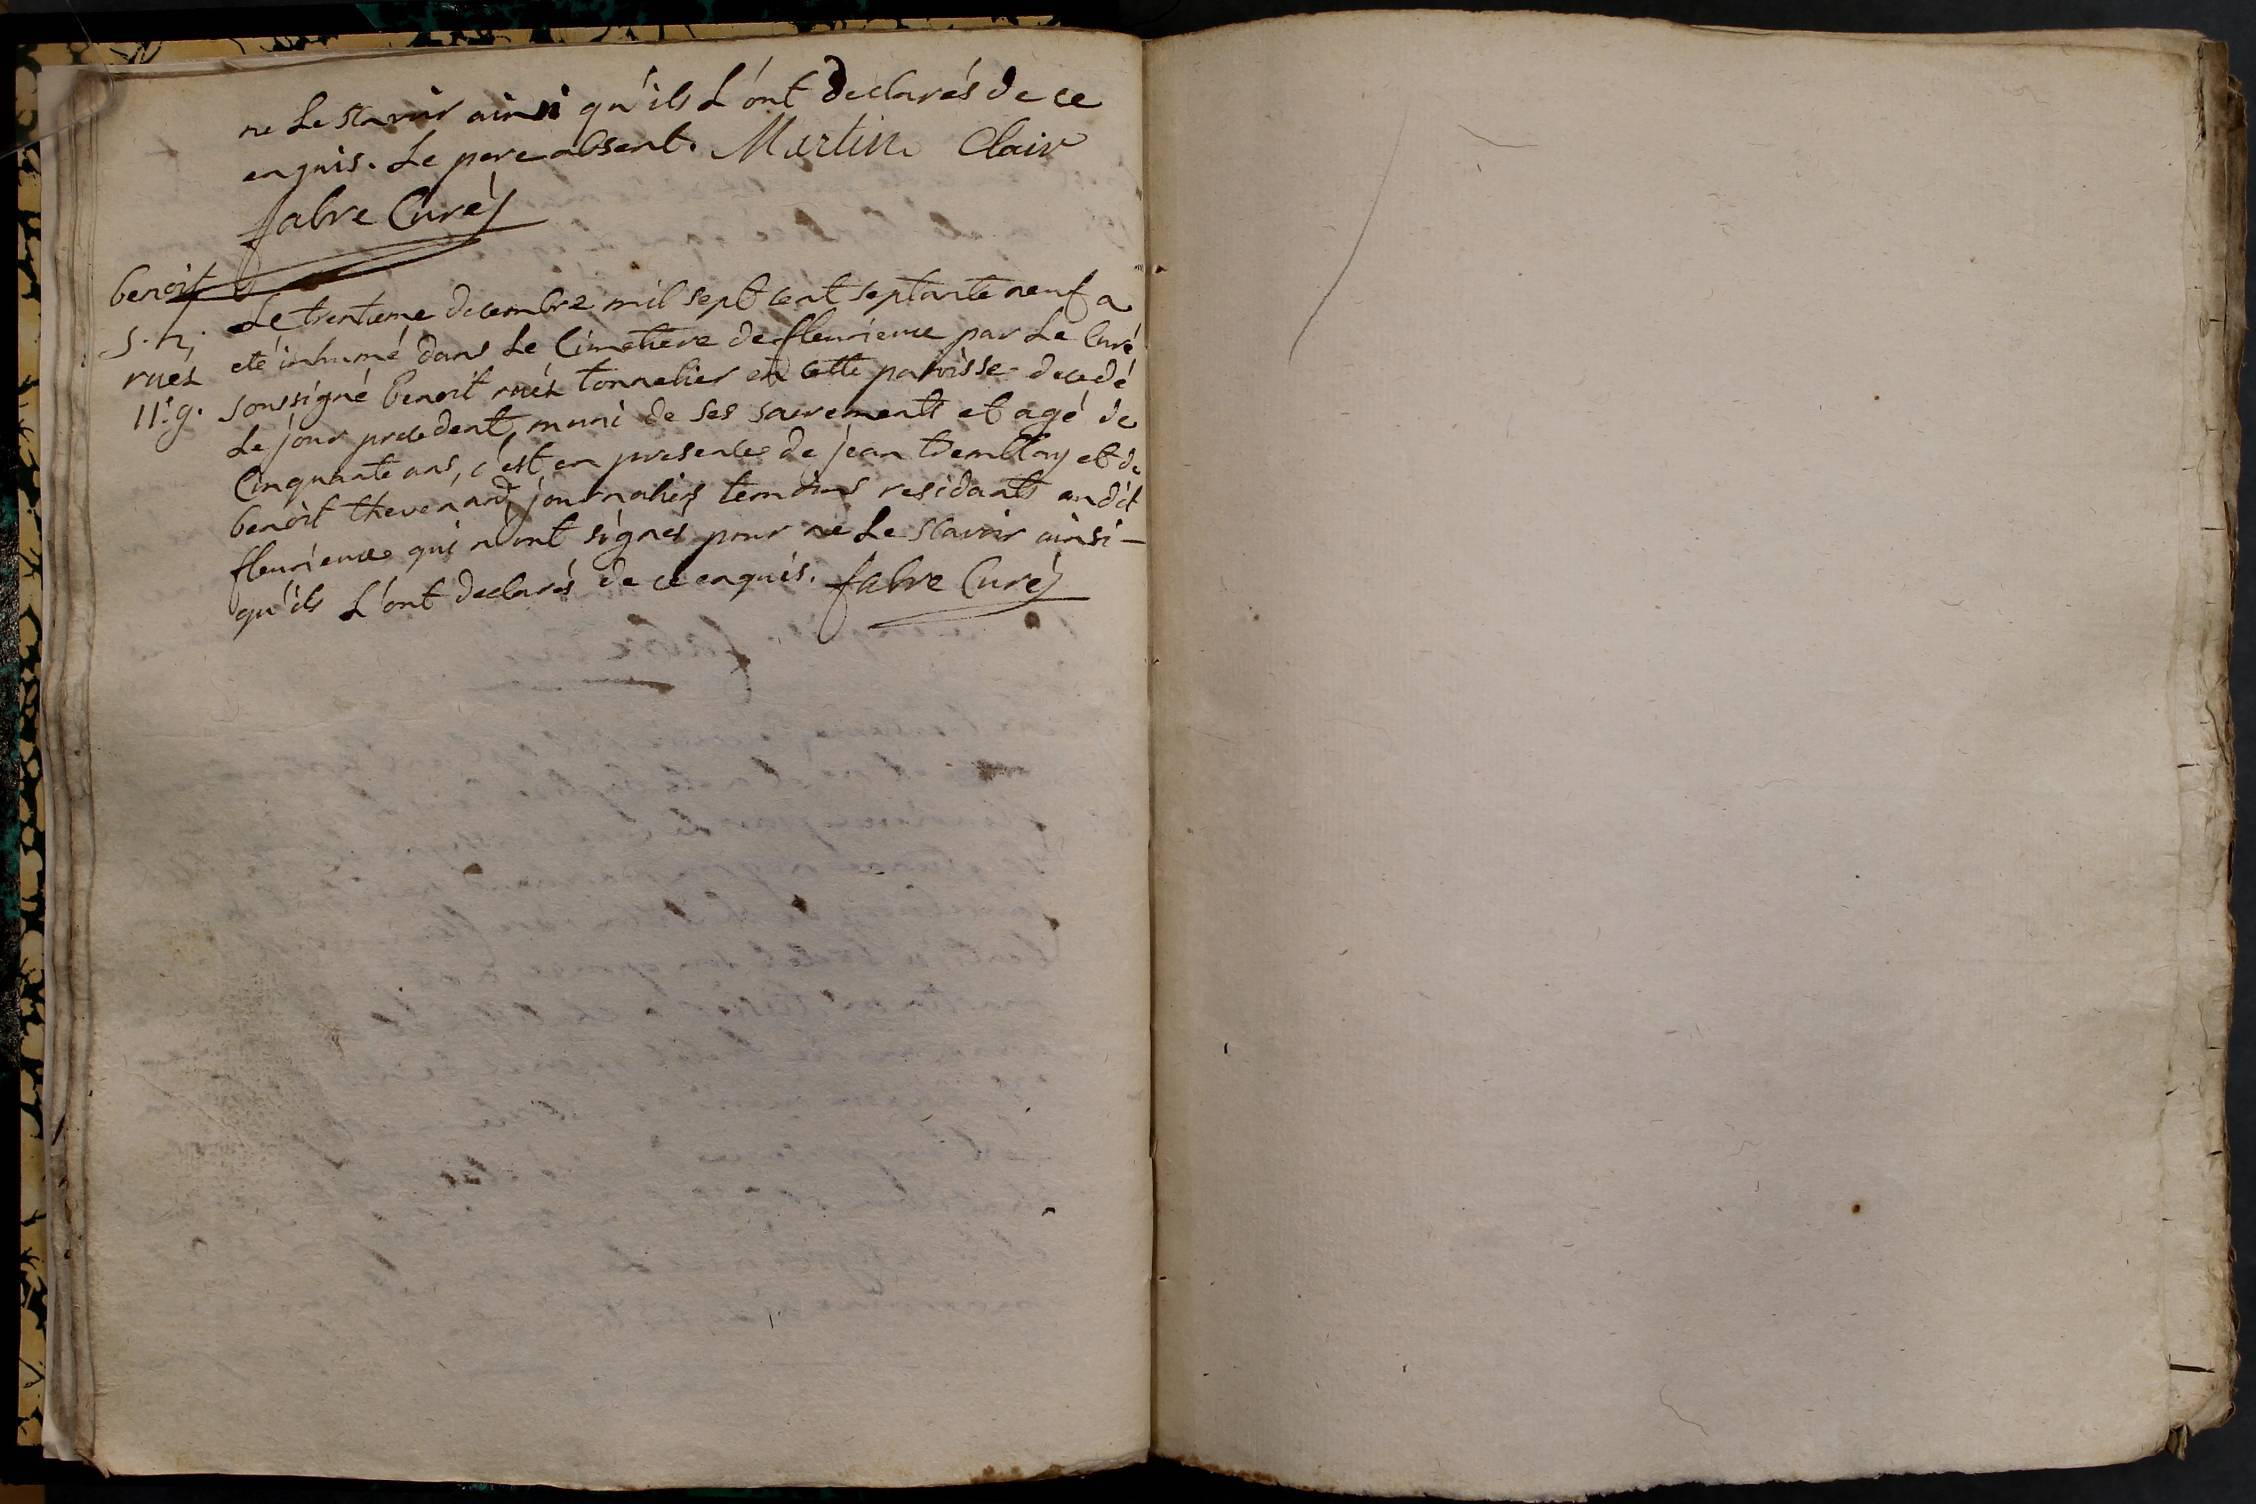 ne Le sçavoir ainsi qu'ils L'ont declarés de ce
enquis. Le pere absent. Martin Clair
fabre Curé
benoit
s. n.
rués
11. g.
Le trentieme decembre mil sept cent septante neuf a
eté inhumé dans Le Cimetiere de fleurieux par Le Curé
soussigné benoit rués tonnelier en cette paroisse decedé
Le jour precedent, muni de ses sacrements et agé de
Cinquante ans, c'est en presence de jean tremblay et de
benoit thevenard journaliers temoins residants audit
fleurieux qui n'ont signés pour ne Le sçavoir ainsi -
qu'ils L'ont declarés de ce enquis. fabre Curé